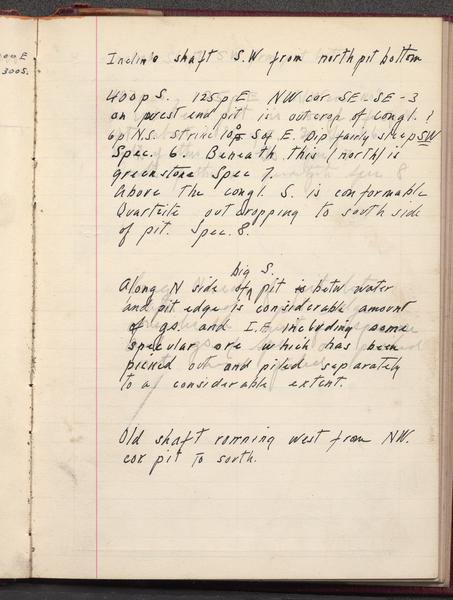 00 E
300S.
Incline shaft S.W from north pit bottom
400p S. 125p E NW cor SE-SE-3
on west end pit is outcrop of congl. ?
6p N.S. Strike 10° S of E. Dip fairly steep SW
Spec. 6. Beneath this (north) is
greenstone Spec 7.
Above the congl. S. is conformable
Quartzite outcropping to south side
of pit. Spec. 8.
big S.
Along N side of pit is betw water
and pit edge is considerable amount
of gs. and I.F. including some
specular ore which has been
picked out and piled separately
to a considerable extent.
Old shaft running west from NW.
cor pit to south.